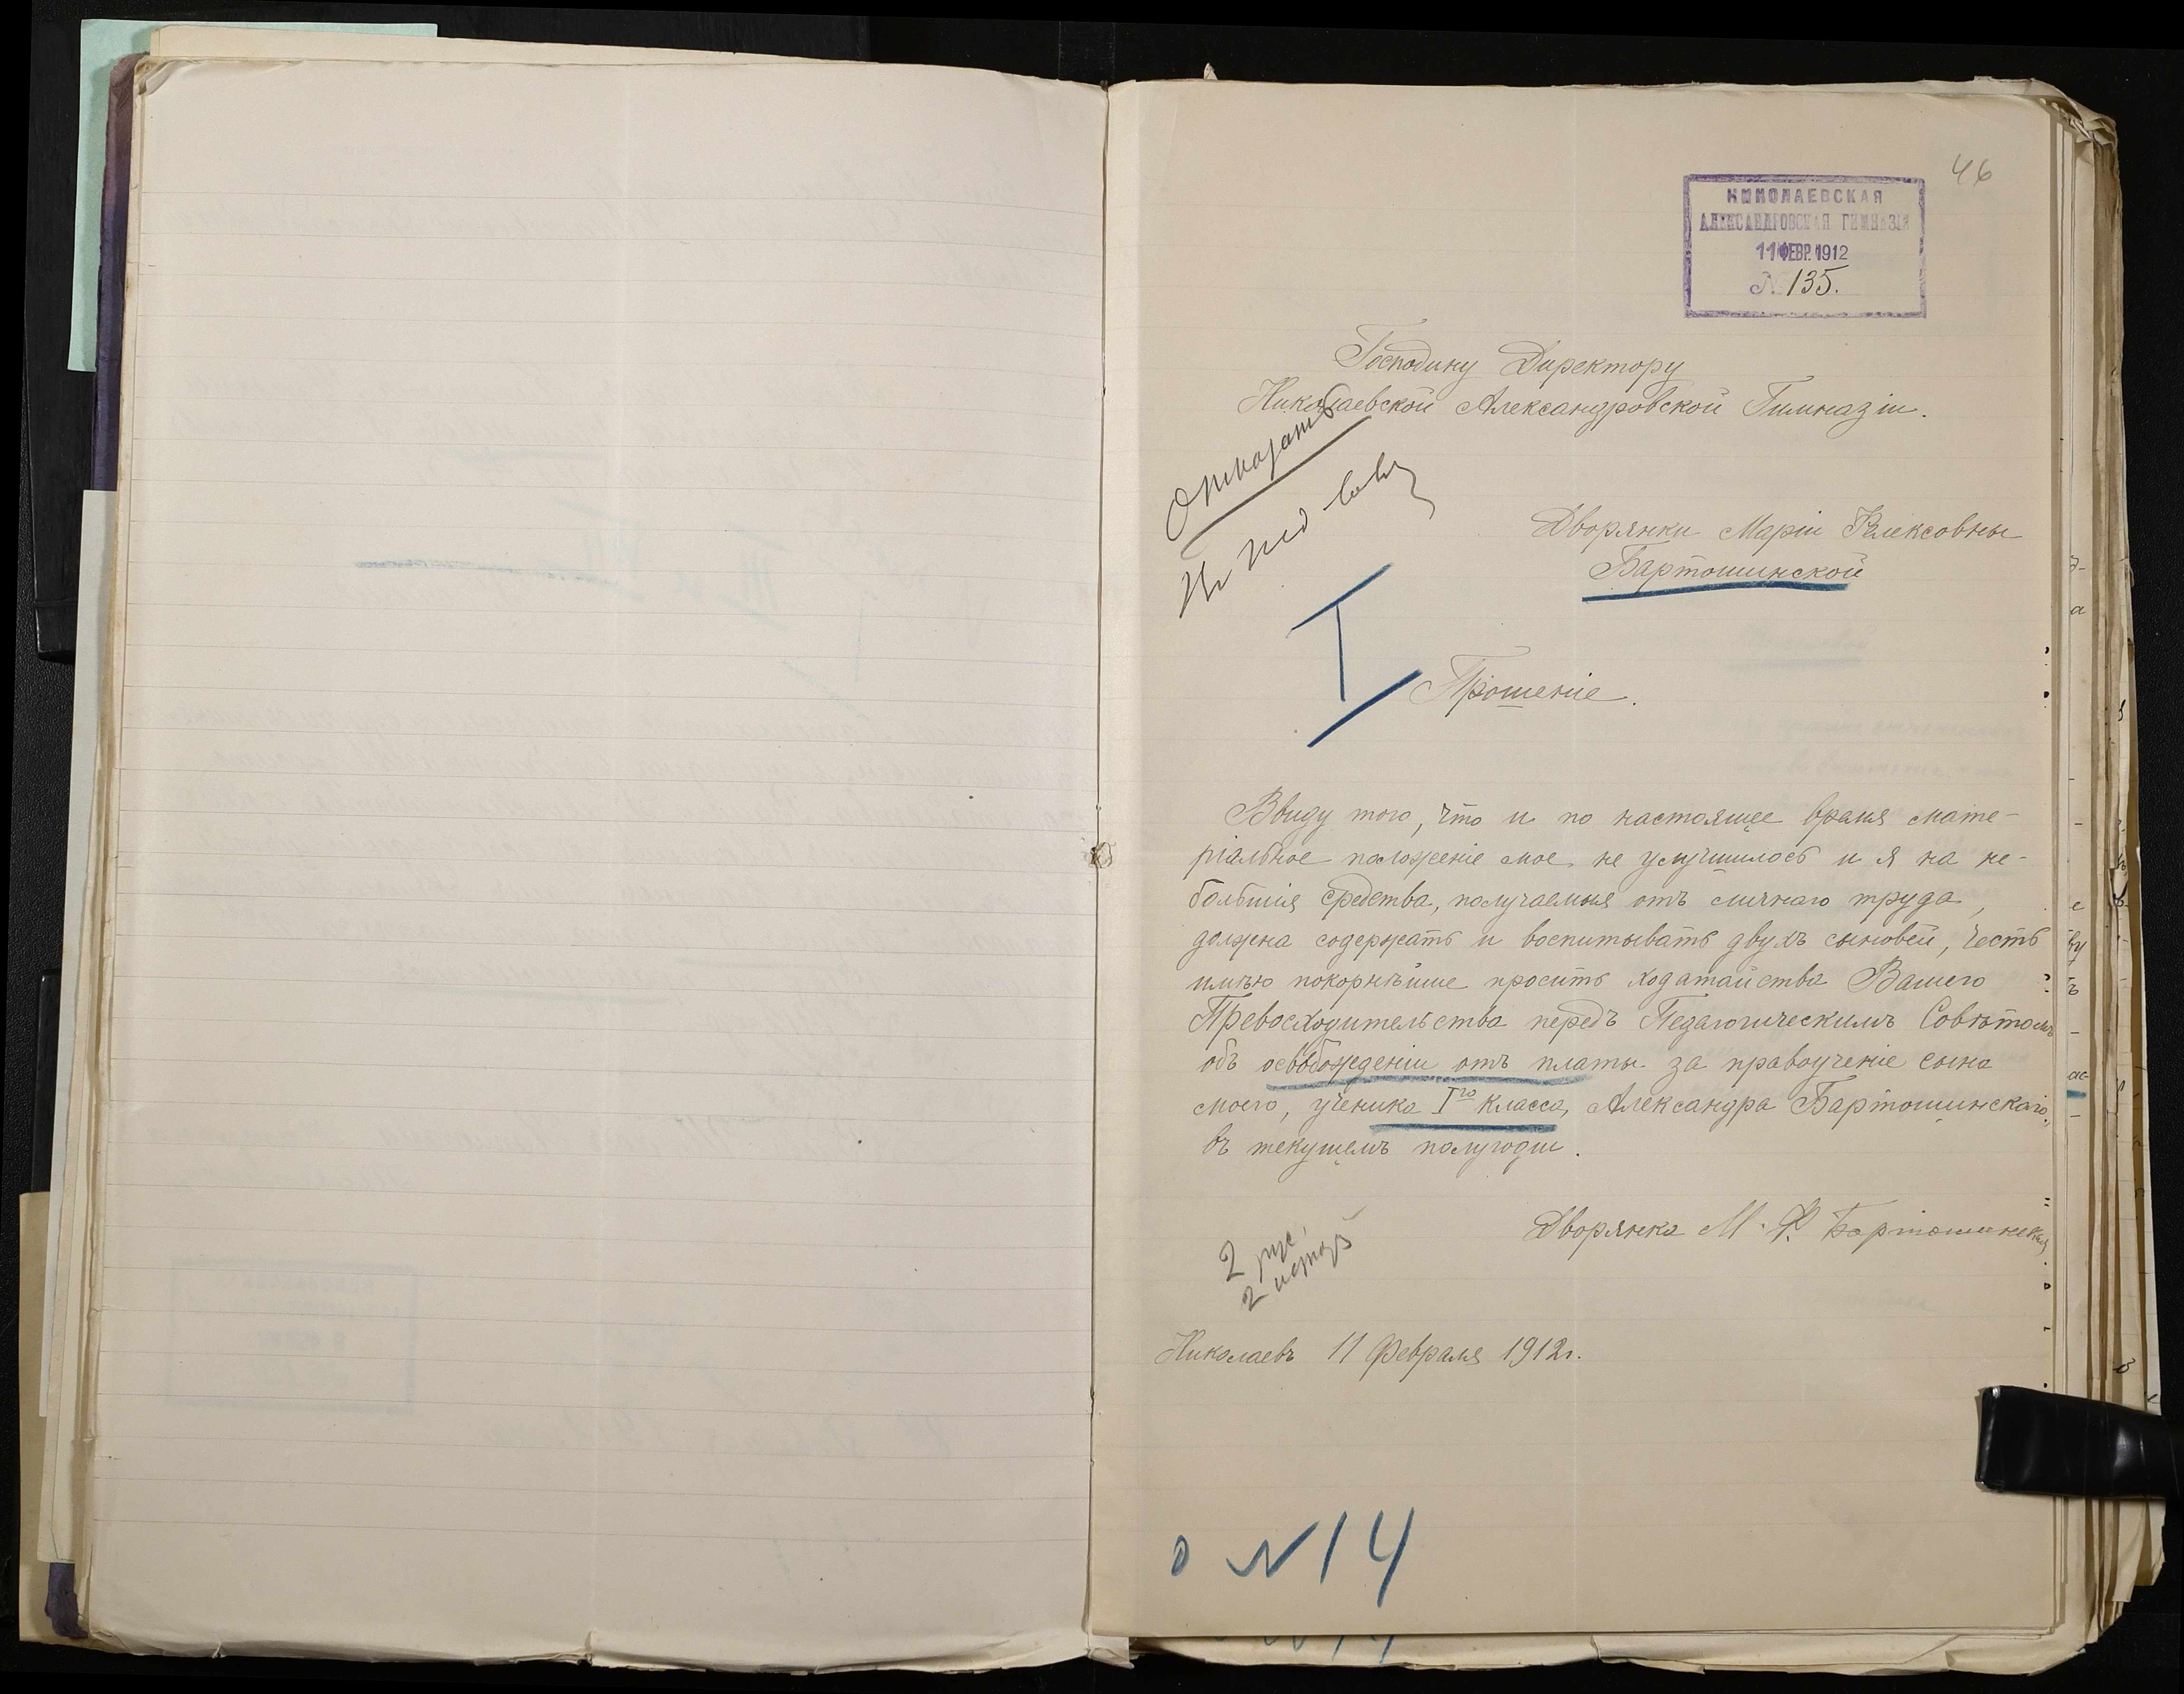 46
НИКОЛАЕВСКАЯ
АЛЕКСАНДРОВСКАЯ ГИМНАЗІЯ
11 ФЕВР. 1912
№ 135.
Господину Директору
Николаевской Александровской Гимназіи.
Отказать
Дворянки Маріи Феликсовны
Бартошинской
I
Прошеніе.
Ввиду того, что и по настоящее время мате-
ріальное положеніе мое не улучшилось и я на не-
большія средства, получаемыя отъ личнаго труда,
должна содержать и воспитывать двухъ сыновей, честь
имѣю покорнѣйше просить ходатайства Вашего
Превосходительства передъ Педагогическимъ Совѣтомъ
объ освобожденіи отъ платы за правоученіе сына
моего, ученика Iго класса, Александра Бартошинскаго,
въ текущемъ полугодіи.
Дворянка М. Ф. Бартошинская
2 рус.
2
Николаевъ 11 Февраля 1912г.
N 14